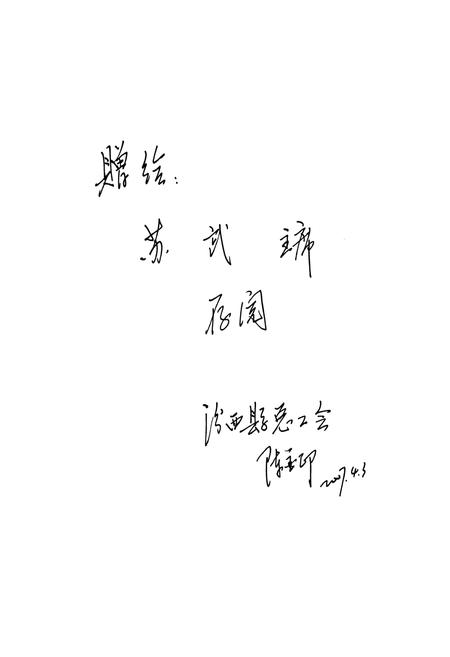 赠给：
苏武 主席
存阅
汾西县总工会
陈玉印 2007.4.3